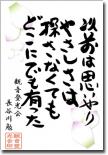 以前は思いやり
やさしさは
探さなくても
どこにでも有った
観音発光会
長谷川勉